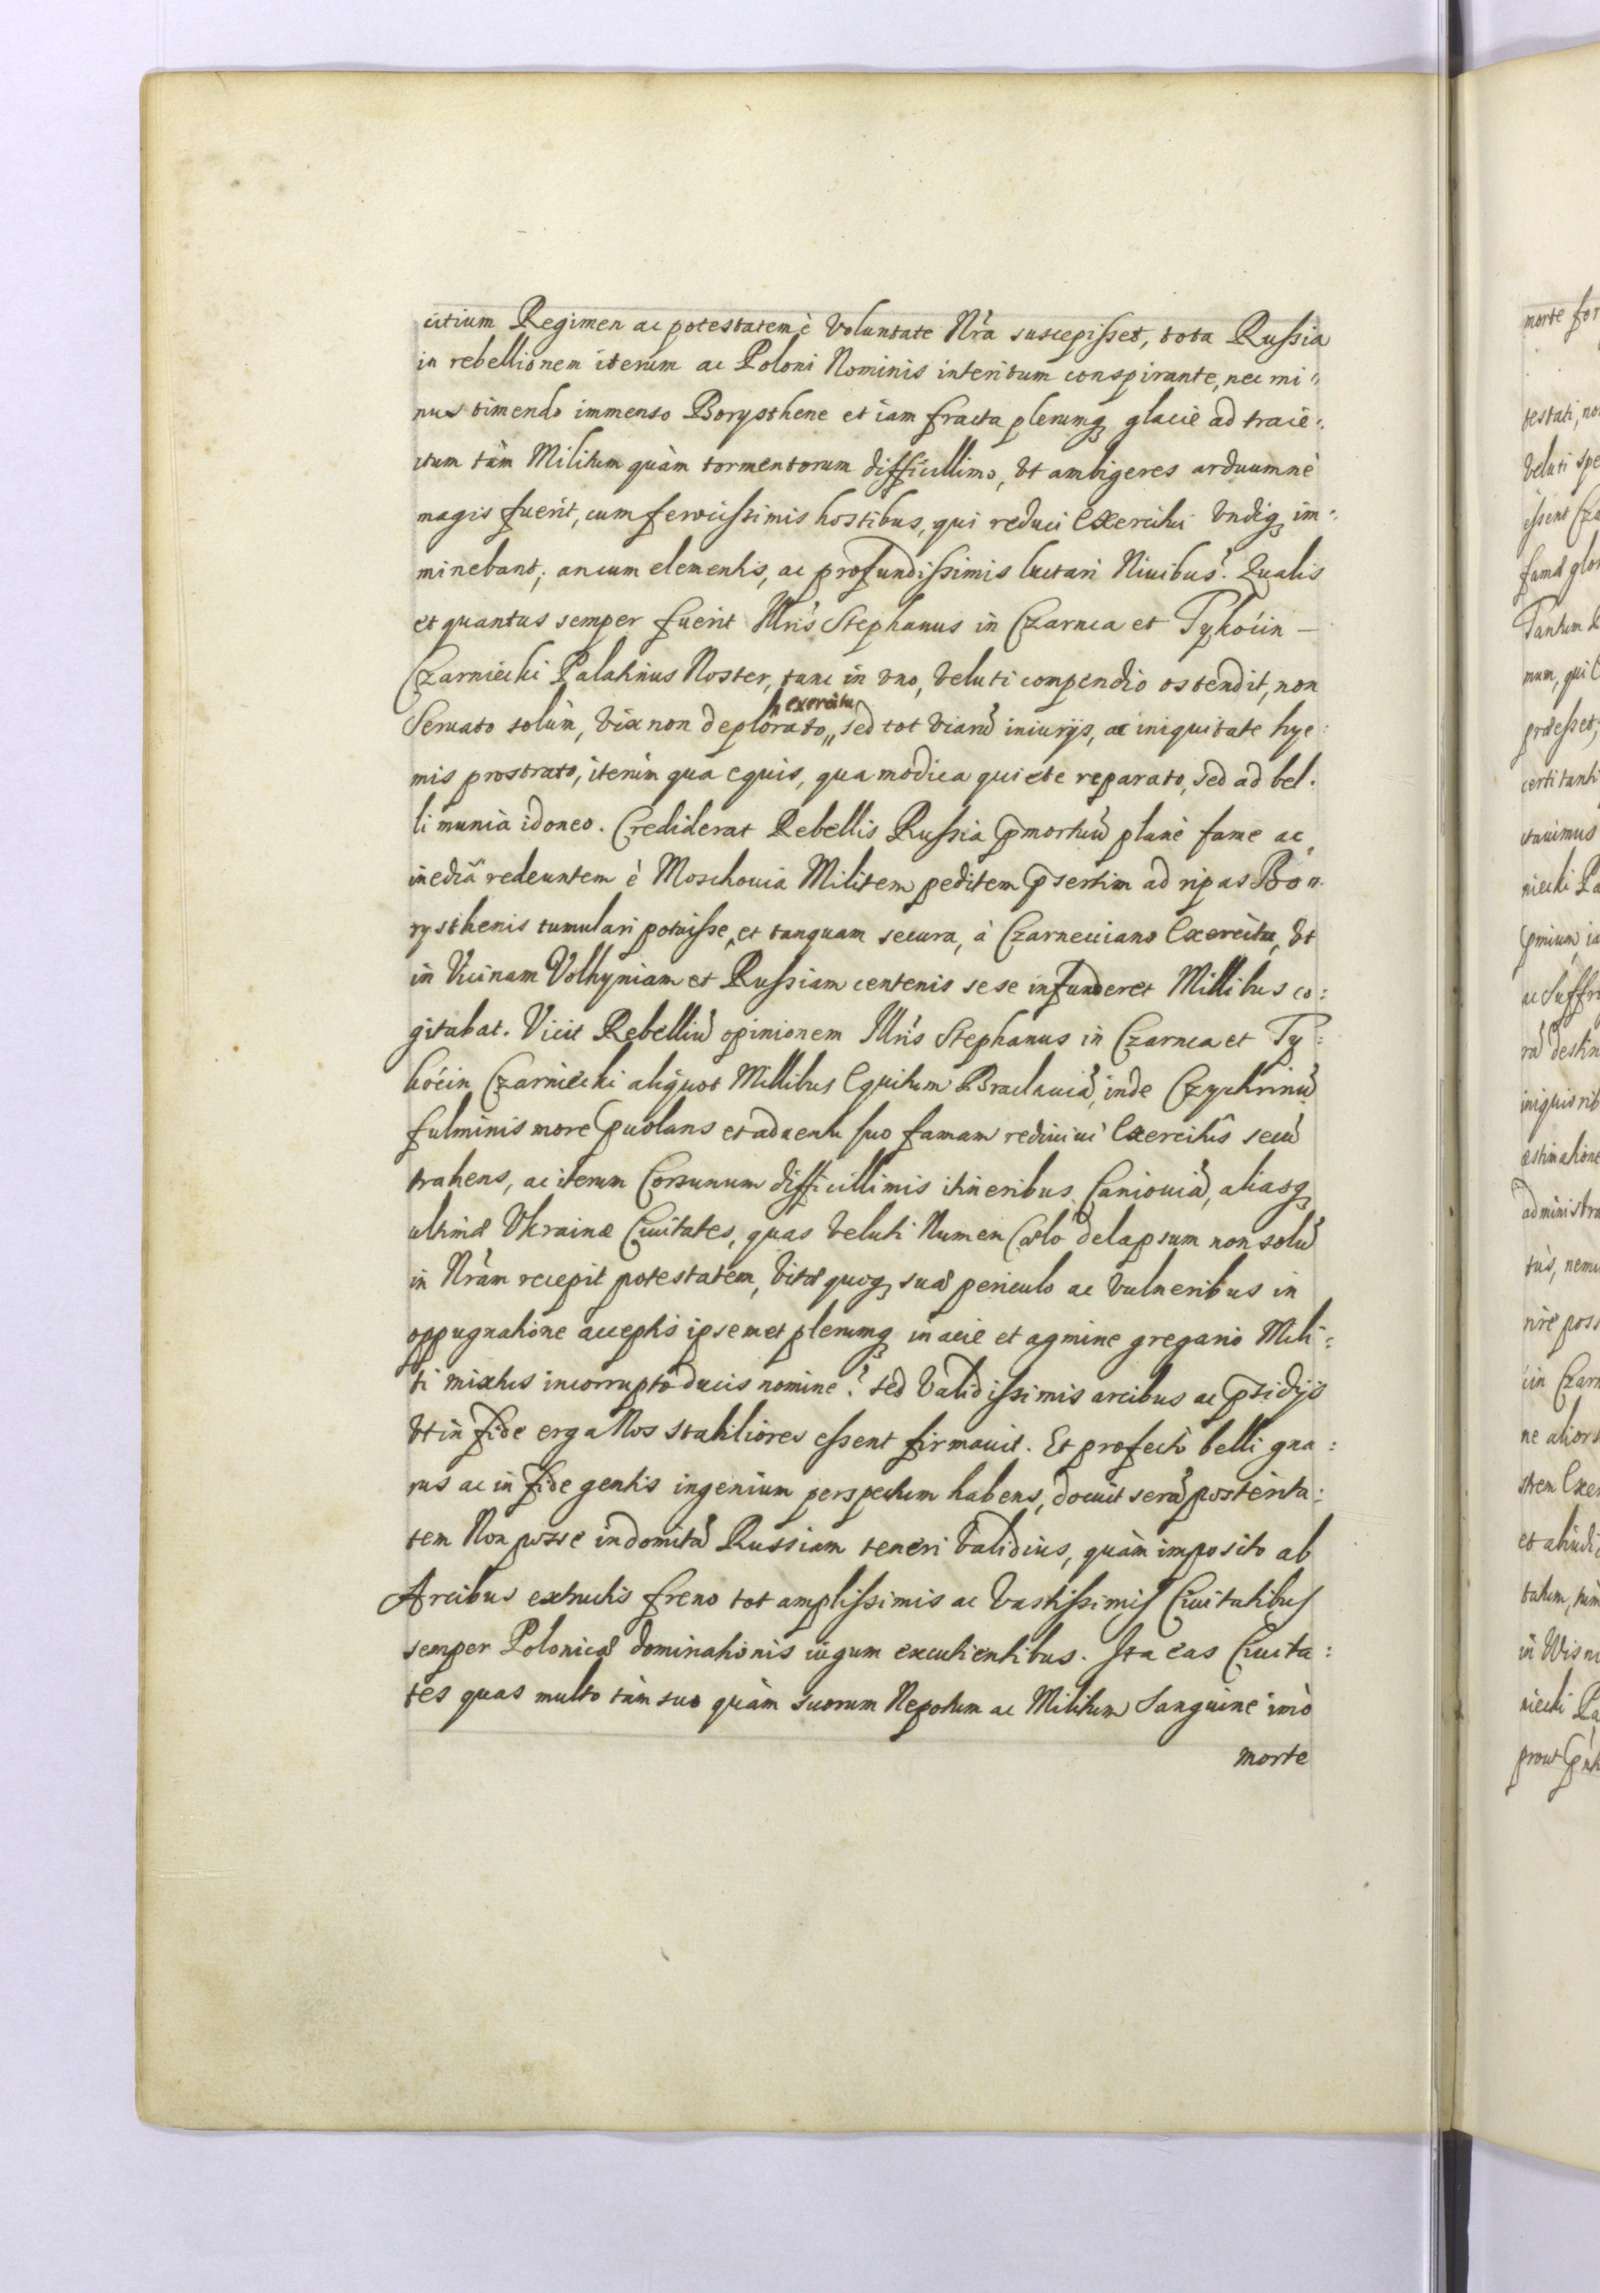 citium Regimen ac potestatem è voluntate Nrã suscepisset, tota Russia
in rebellionem iterum ac Poloni Nominis interitum conspirante, nec mi:
nus timendo immenso Borysthene et iam fracta plerumq̃ glacie ad traie:
ctum tàm Militum quàm tormentorum difficillimo, vt ambigeres arduumnè
magis fuerit, cum ferocissimis hostibus, qui reduci Exercitui vndiq̃ im:
minebant; an cum elementis, ac profundissimis luctari Niuibus? Qualis
et quantus semper fuerit Illris Stephanus in Czarnca et Tykocin
Czarniecki Palatinus Noster, tunc in vno, veluti compendio ostendit, non
exercitu
Seruato solùm, vix non deplorato, sed tot viarũ iniurijs, ac iniquitate hye:
mis prostrato, iterùm qua equis, qua modica quiete reparato, sed ad bel:
li munia idoneo. Crediderat Rebellis Russia p̃mortuũ planè fame ac
inediã redeuntem è Moschouia Militem peditem p̃sertim ad ripas Bo:
rysthenis tumulari potuisse, et tanquam secura, à Czarnecciano Exercitu, vt
in Vicinam Volhyniam et Russiam centenis sese infunderet Millibus co:
gitabat. Vicit Rebelliũ opinionem Illris Stephanus in Czarnca et Ty:
kocin Czarniecki aliquot Millibus Equitum Braclauiã, inde Czychrinũ
fulminis more p̃uolans et aduentu suo famam rediuiui Exercitus secũ
trahens, ac iterum Corsunum difficillimis itineribus Caniouiã, aliasq̃
ultimæ Vkrainæ Ciuitates, quas veluti Numen Cælo delapsum non solũ
in Nrãm recepit potestatem, vitæ quoq̃ suæ periculo ac vulneribus in
oppugnatione acceptis ipsemet plerumq̃ in acie et agmine gregario Mili:
ti mixtus incorrupto ducis nomine? sed validissimis arcibus ac p̃sidijs
vt in fide erga Nos stabiliores essent firmauit. Et profectò belli gna:
rus ac in fide gentis ingenium perspectum habens, docuit serã posterita:
tem Non posse indomitã Russiam teneri validius, quàm imposito ab
Arcibus extructis freno tot amplissimis ac vastissimis Ciuitatibus
semper Polonicæ dominationis iugum excutientibus. Ita eas Ciuita:
tes quas multo tàm suo quàm suorum Nepotum ac Militum Sanguine imò
morte